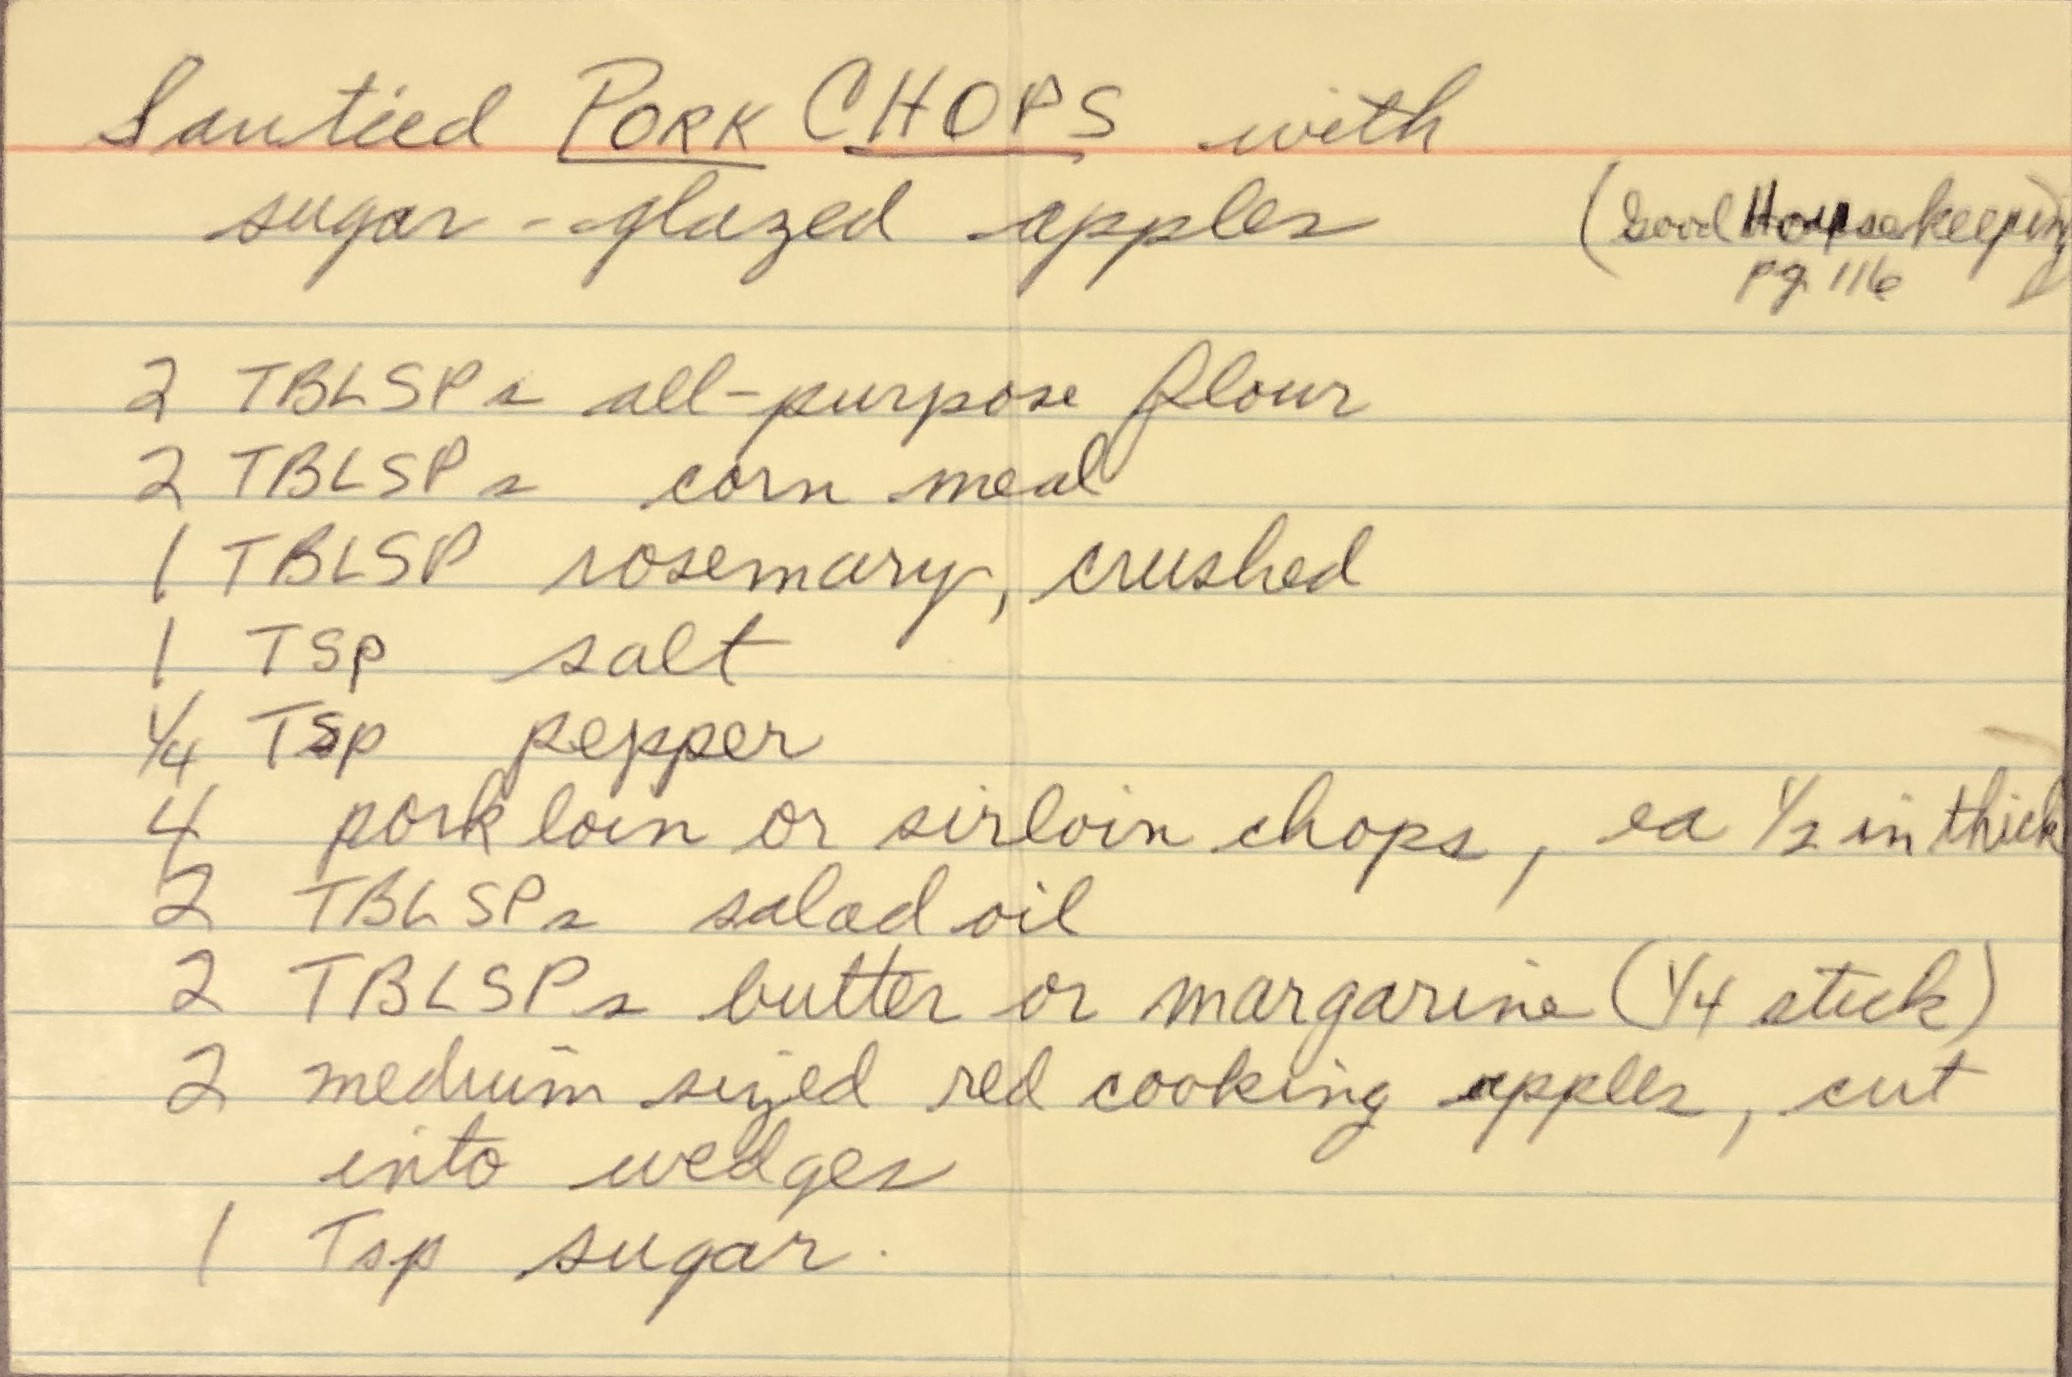 Sautied PORK CHOPS with
sugar-glazed apples
(Good Housekeeping
pg. 116)
2 TBLSPs all-purpose flour
2 TBLSPs corn meal
1 TBLSP rosemary, crushed
1 TSP salt
1/4 TSp pepper
4 pork loin or sirloin chops, ea 1/2 in thick
2 TBLSPs salad oil
2 TBLSPs butter or margarine (1/4 stick)
2 medium sized red cooking apples, cut
into wedges
1 Tsp sugar.